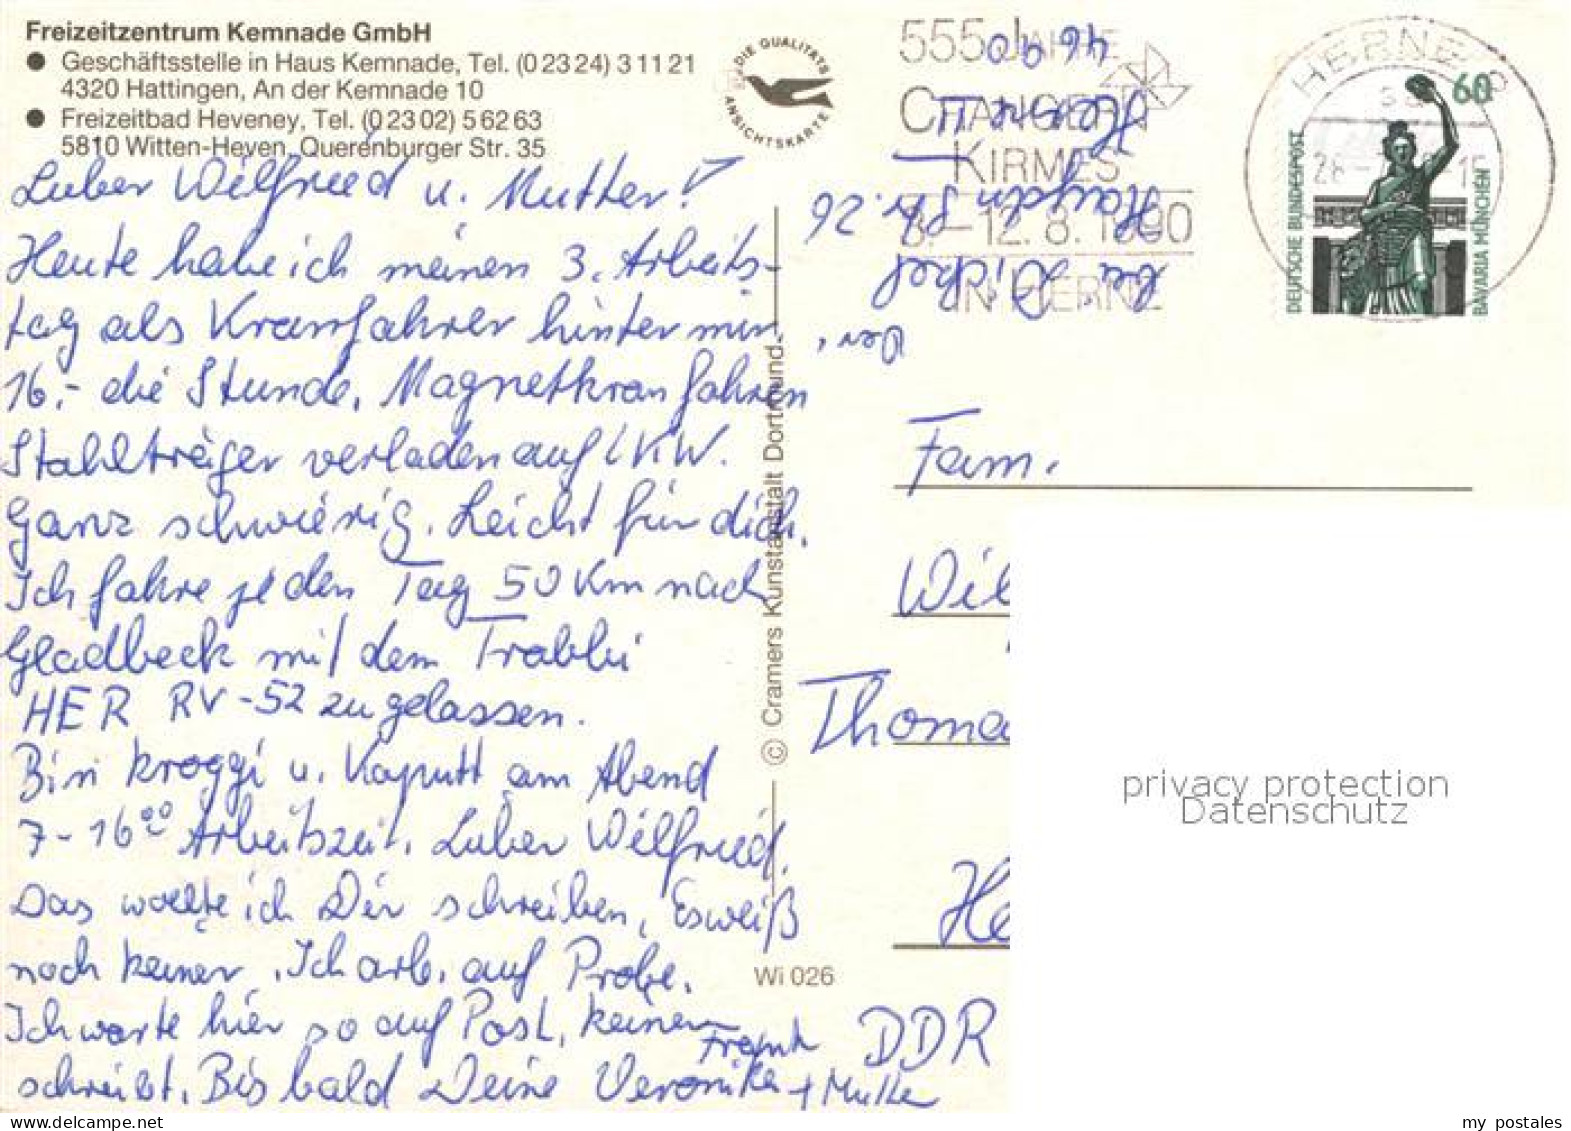 Freizeitzentrum Kemnade GmbH
● Geschäftsstelle in Haus Kemnade, Tel. (0 23 24) 3 11 21
4320 Hattingen, An der Kemnade 10
● Freizeitbad Heveney, Tel. (0 23 02) 5 62 63
5810 Witten-Heven, Querenburger Str. 35
DIE QUALITÄTS
ANSICHTSKARTE
Lieber Wilfried u. Mutter!
Heute habe ich meinen 3. Arbeits-
tag als Kranfahrer hinter mir.
16,- die Stunde, Magnetkran fahren
Stahlträger verladen auf LKW.
Ganz schwierig. Leicht für dich.
Ich fahre jeden Tag 50 Km nach
Gladbeck mit dem Trabbi
HER RV-52 zugelassen.
Bin kroggi u. Kaputt am Abend
7-16⁰⁰ Arbeitszeit. Lieber Wilfried.
Das wollte ich Dir schreiben, Es weiß
noch keiner. Ich arb. auf Probe.
Ich warte hier so auf Post, keiner
schreibt. Bis bald Deine Veronika
Frank
+ Mutter
© Cramers Kunstanstalt Dortmund
Wi 026
555 JAHRE
CRANGER
KIRMES
3.–12. 8. 1990
IN HERNE
Ver.
bei Dichel
Haydn Str. 26
Herne II
46 90
HERNE
DEUTSCHE BUNDESPOST
60
BAVARIA MÜNCHEN
Fam.
Wil
Thoma
He
DDR
privacy protection
Datenschutz
my_postales